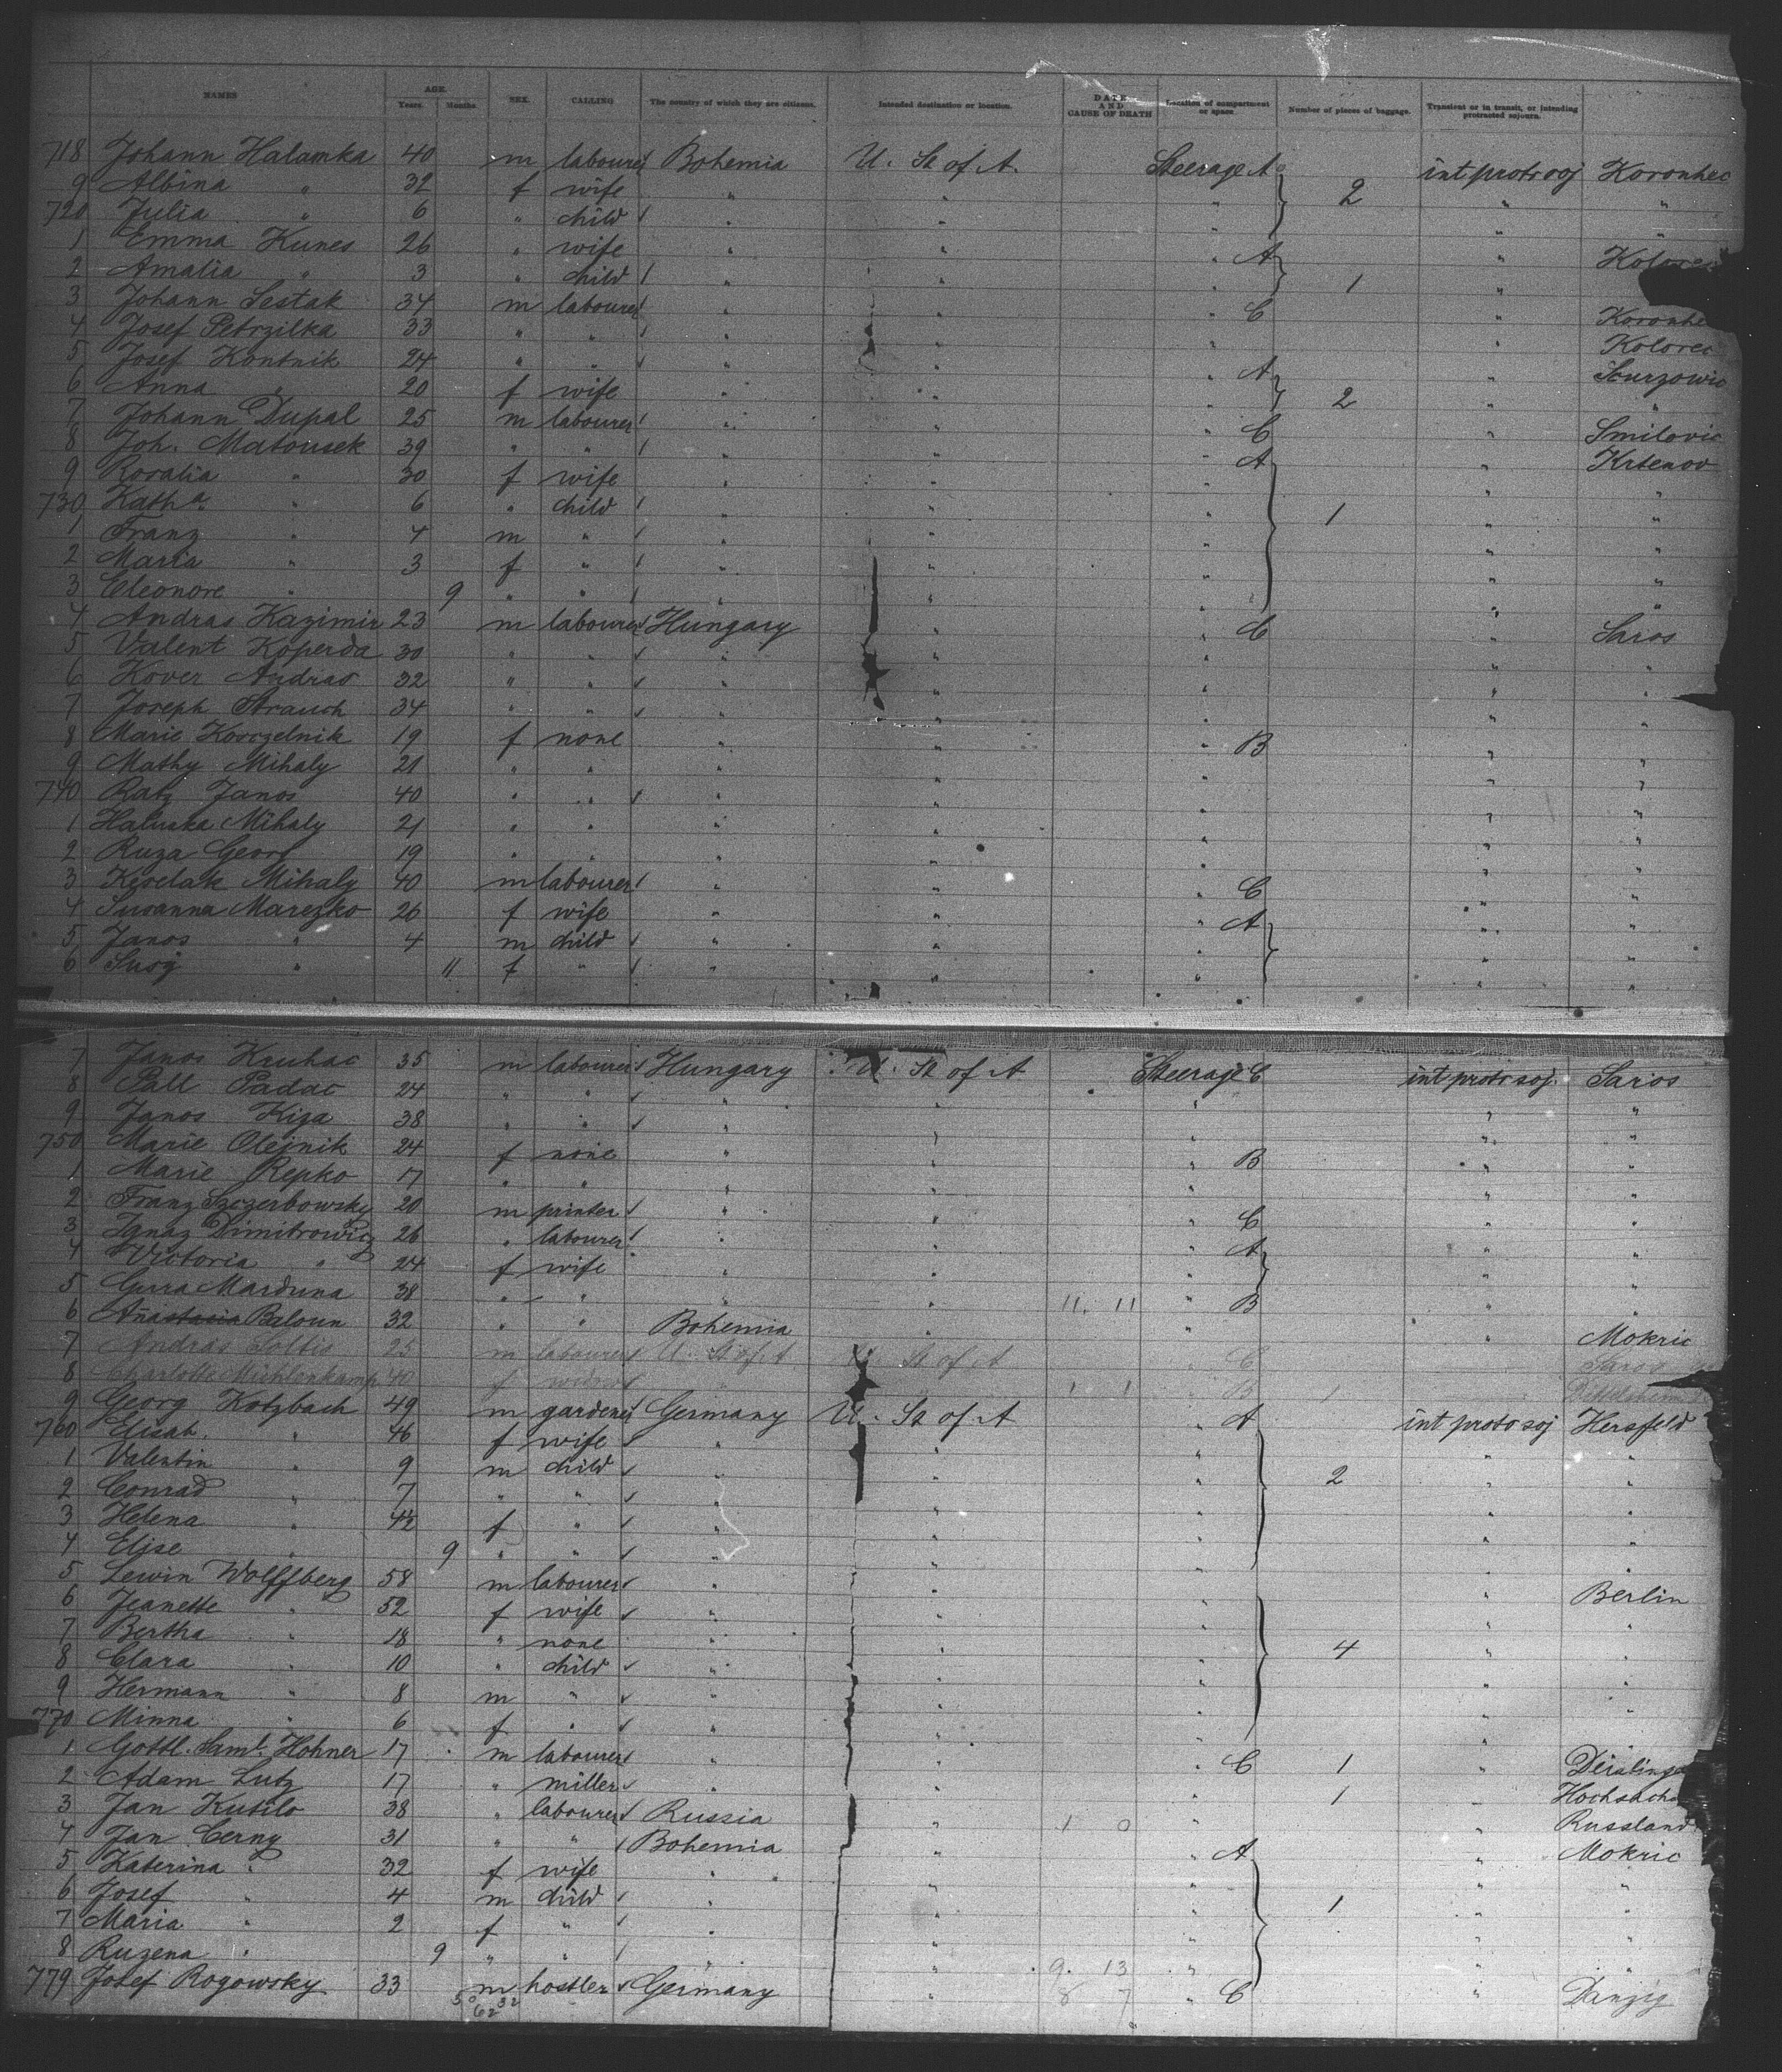 NAMES AGE. Years. Months SEX. CALLING The country of which they are citizens. Intended destination or location. DATE AND CAUSE OF DEATH Location of compartment or space Number of pieces of baggage. Transient or in transit, or intending protracted sojourn.
718 Johann Halamka 40 m labourer Bohemia U. St of A. Steerage A 2 int protr soj Koronhec
9 Albina " 32 f wife " " " " "
720 Julia " 6 " child " " " " "
1 Emma Kunes 26 " wife " " " A 1 "
2 Amalia " 3 " child " " " "
3 Johann Sestak 34 m labourer " " " C "
4 Josef Petrzilka 33 " " " " " " Kolorec
5 Josef Kontnik 24 " " " " " A 2 "
6 Anna " 20 f wife " " " " "
7 Johann Dupal 25 m labourer " " " C " Smilovic
8 Joh. Matousek 39 " " " " " A 1 " Krtenov
9 Rosalia " 30 f wife " " " " "
730 Katha " 6 " child " " " " "
1 Franz " 4 m " " " " " "
2 Maria " 3 f " " " " " "
3 Eleonore " 9 " " " " " " "
4 Andras Kazimir 23 m labourer Hungary " " C " Saros
5 Valent Koperda 30 " " " " " " "
6 Kover Andras 32 " " " " " " "
7 Joseph Strauch 34 " " " " " " "
8 Marie Korczelnik 19 f none " " " B " "
9 Mathy Mihaly 21 " " " " " " "
740 Ratz Janos 40 " " " " " " "
1 Haluska Mihaly 21 " " " " " " "
2 Ruza Georg 19 " " " " " " "
3 Keselak Mihaly 40 m labourer " " " C " "
4 Susanna Marezko 26 f wife " " " A " "
5 Janos " 4 m child " " " " "
6 " 11 f " " " " " "
7 Janos Kruhac 35 m labourer Hungary U. St of A Steerage C int protr soj Saros
8 Pall Padac 24 " " " " " " "
9 Janos Kiga 38 " " " " " " "
750 Marie Olejnik 24 f none " " " B " "
1 Marie Repko 17 " " " " " " "
2 Franz Szczerbowsky 20 m printer " " " C " "
3 Ignaz Dimitrowicz 26 " labourer " " " A " "
4 Victoria " 24 f wife " " " " "
5 Marduna 38 " " " " 11. 11 " B " "
6 Anastasia Baloun 32 " " Bohemia " " " Mokric
7 Andras Soltis 25 m labourer U. St of A U. St of A " C Saros
8 Charlotte Michlenkamp 40 f " 1 1 " B 1
9 Georg Kotzbach 49 m gardener Germany U. St of A " A 2 int protr soj Hersfeld
760 Elisab. " 46 f wife " " " " "
1 Valentin " 9 m child " " " " "
2 Conrad " 7 " " " " " " "
3 Helena " f " " " " " "
4 Elise " 9 " " " " " " "
5 Lewin Wolffberg 58 m labourer " " " 4 " Berlin
6 Jeanette " 52 f wife " " " " "
7 Bertha " 18 " none " " " " "
8 Clara " 10 " child " " " " "
9 Hermann " 8 m " " " " " "
770 Minna " 6 f " " " " " "
1 Gottl. Saml. Hohner 17 m labourer " " " C 1 "
2 Adam Lutz 17 " miller " " " 1 "
3 Jan Kutilo 38 " labourer Russia " 1 0 " " Russland
4 Jan Cerny 31 " " Bohemia " " A 1 " Mokric
5 Katerina " 32 f wife " " " " "
6 Josef " 4 m child " " " " "
7 Maria " 2 f " " " " " "
8 Ruzena " 9 " " " " 9. 13 " " "
779 Josef Rogowsky 33 m hostler Germany " 8 7 " C " Danzig